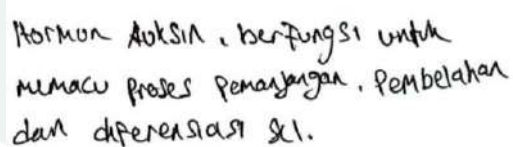 Hormon Auksin, berfungsi untuk
memacu proses Pemanjangan, Pembelahan
dan diferensiasi sel.